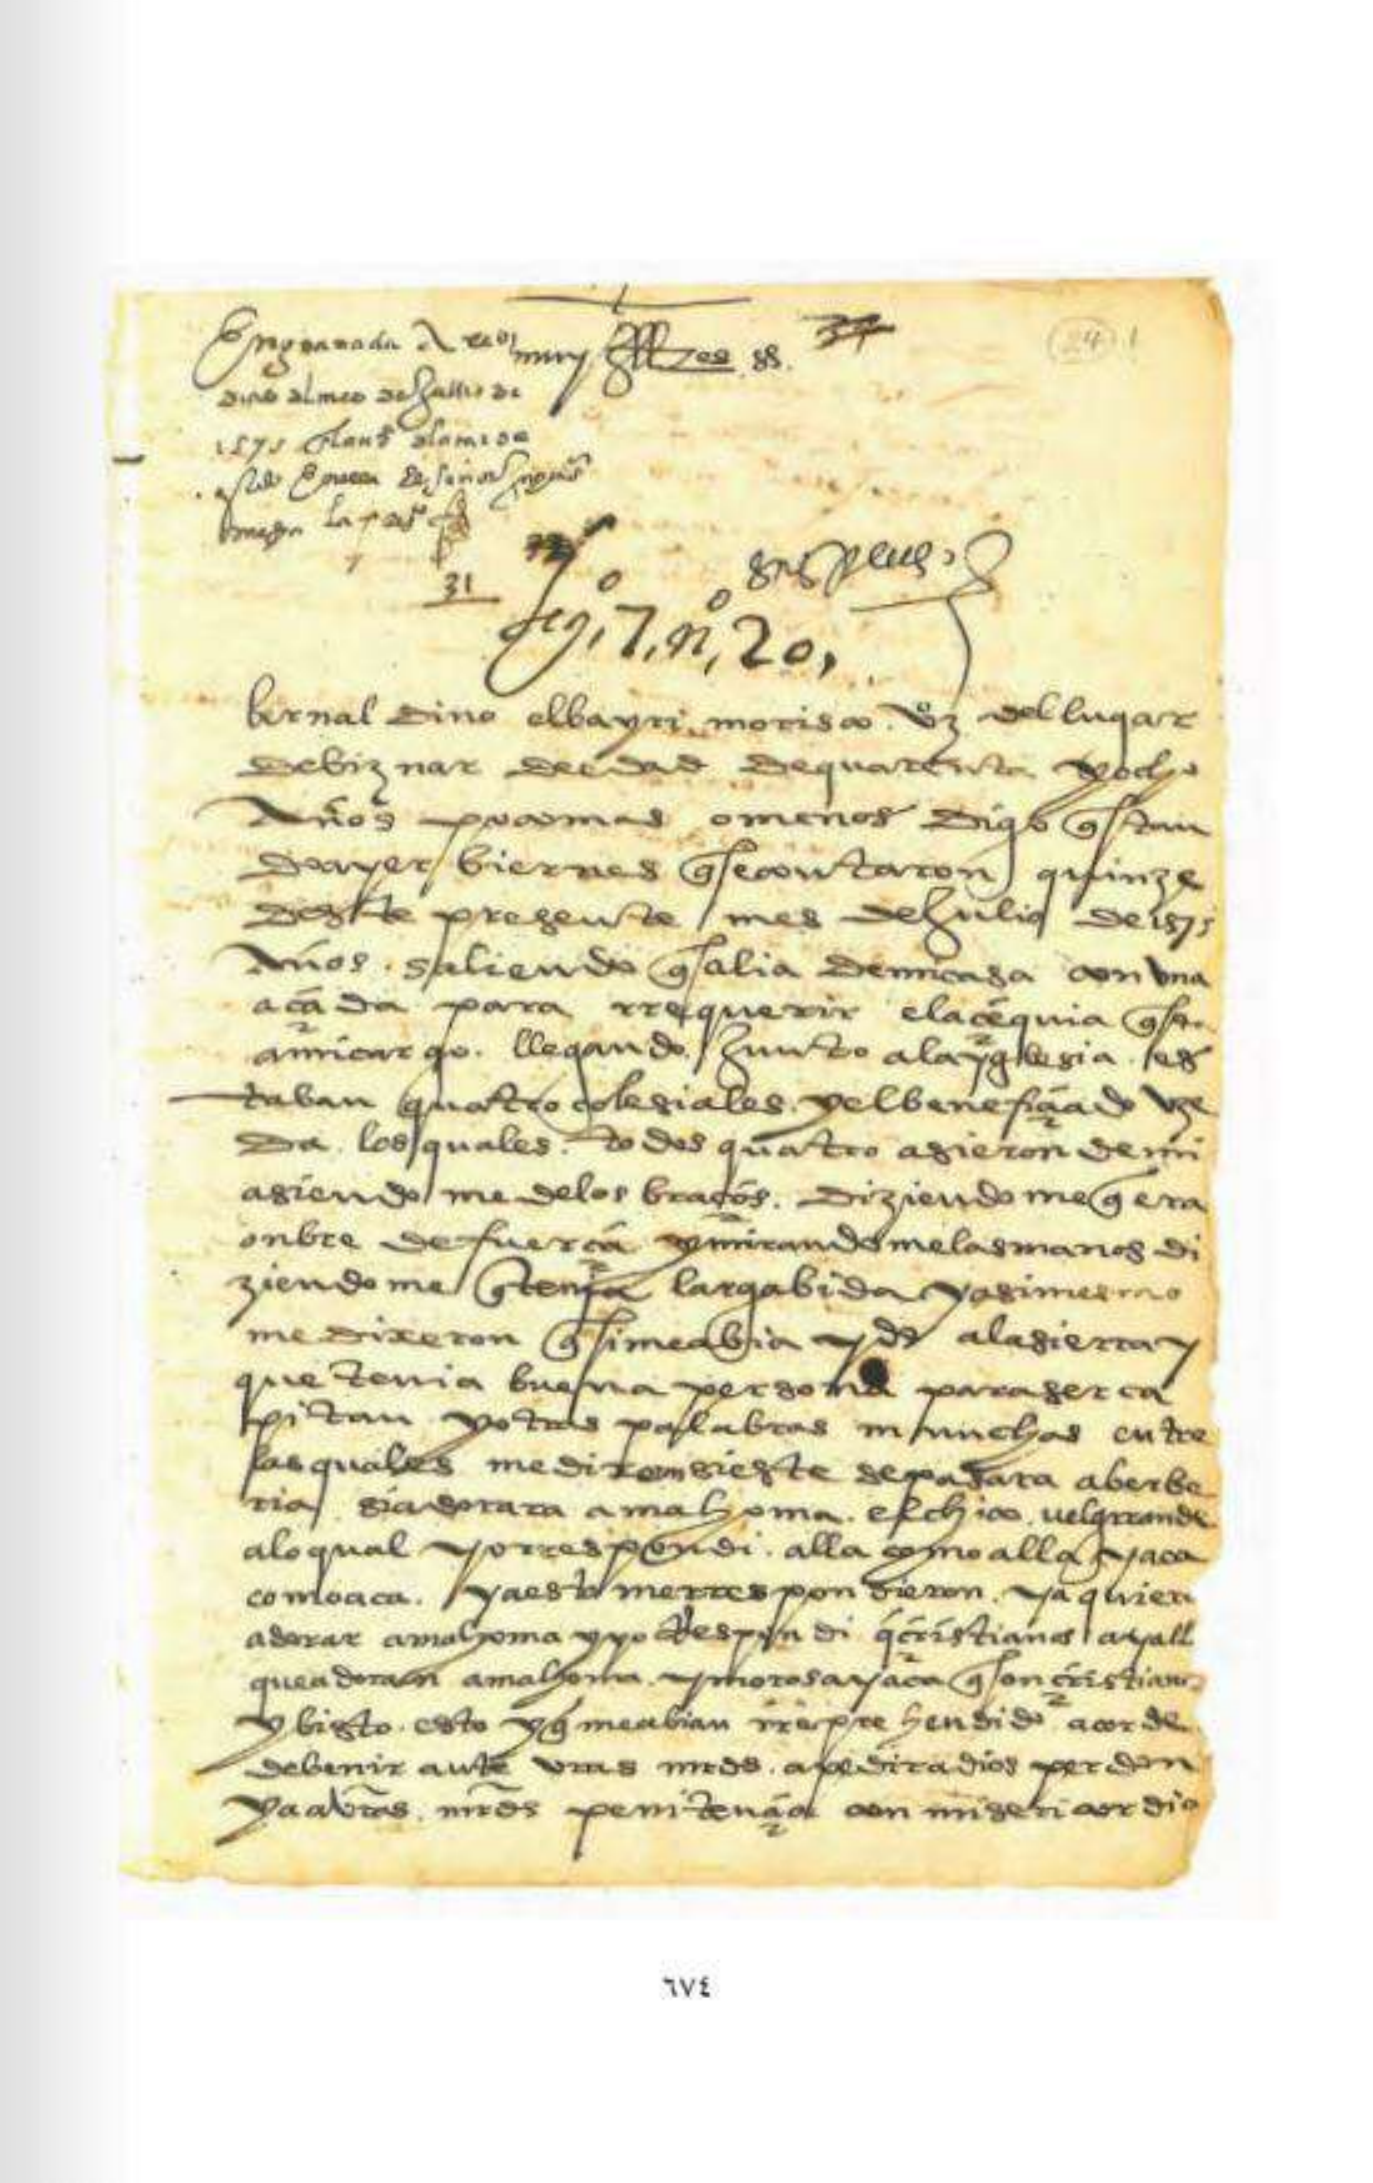 En granada A
muy Illes. ss.
24 1
dias del mes de Jullio de
1575
la
31
leg.o 7, n.o 20,
bernaldino elbayri morisco vzo del lugar
debiznar de edad de quarenta y ocho
Años poco mas o menos digo q estan
do ayer biernes q se contaron quinze
deste presente mes de Julio de 1575
Años saliendo q salia de mi casa con una
açada para rrequerir el acequia q esta
a mi cargo. llegando Junto a la yglesia es
taban quatro colesiales y el beneficiado uze
da los quales todos quatro asieron de mi
asiendo me de los braços. diziendo me q era
onbre de fuerça y mirandome las manos di
ziendome q tenia larga bida y asimesmo
me dixeron q si me abia ydo a la sierra y
que tenia buena persona para ser ca
pitan y otras palabras muchas entre
las quales me dixeron si este se pasara a berbe
ria si adorara a mahoma el chico u el grrande
a lo qual yo rrespondi alla como alla y aca
como aca. y a esto me rrespondieron ya quien
adorar a mahoma y yo Respondi q cristianos ay all
que adoran a mahoma y moros ay aca q son cristianos
y bisto esto y q me abian rreprehendido acorde
de benir ante vras mrds a pedir a dios perdon
y a a vras mrds penitençia con misericordia
٦٧٤